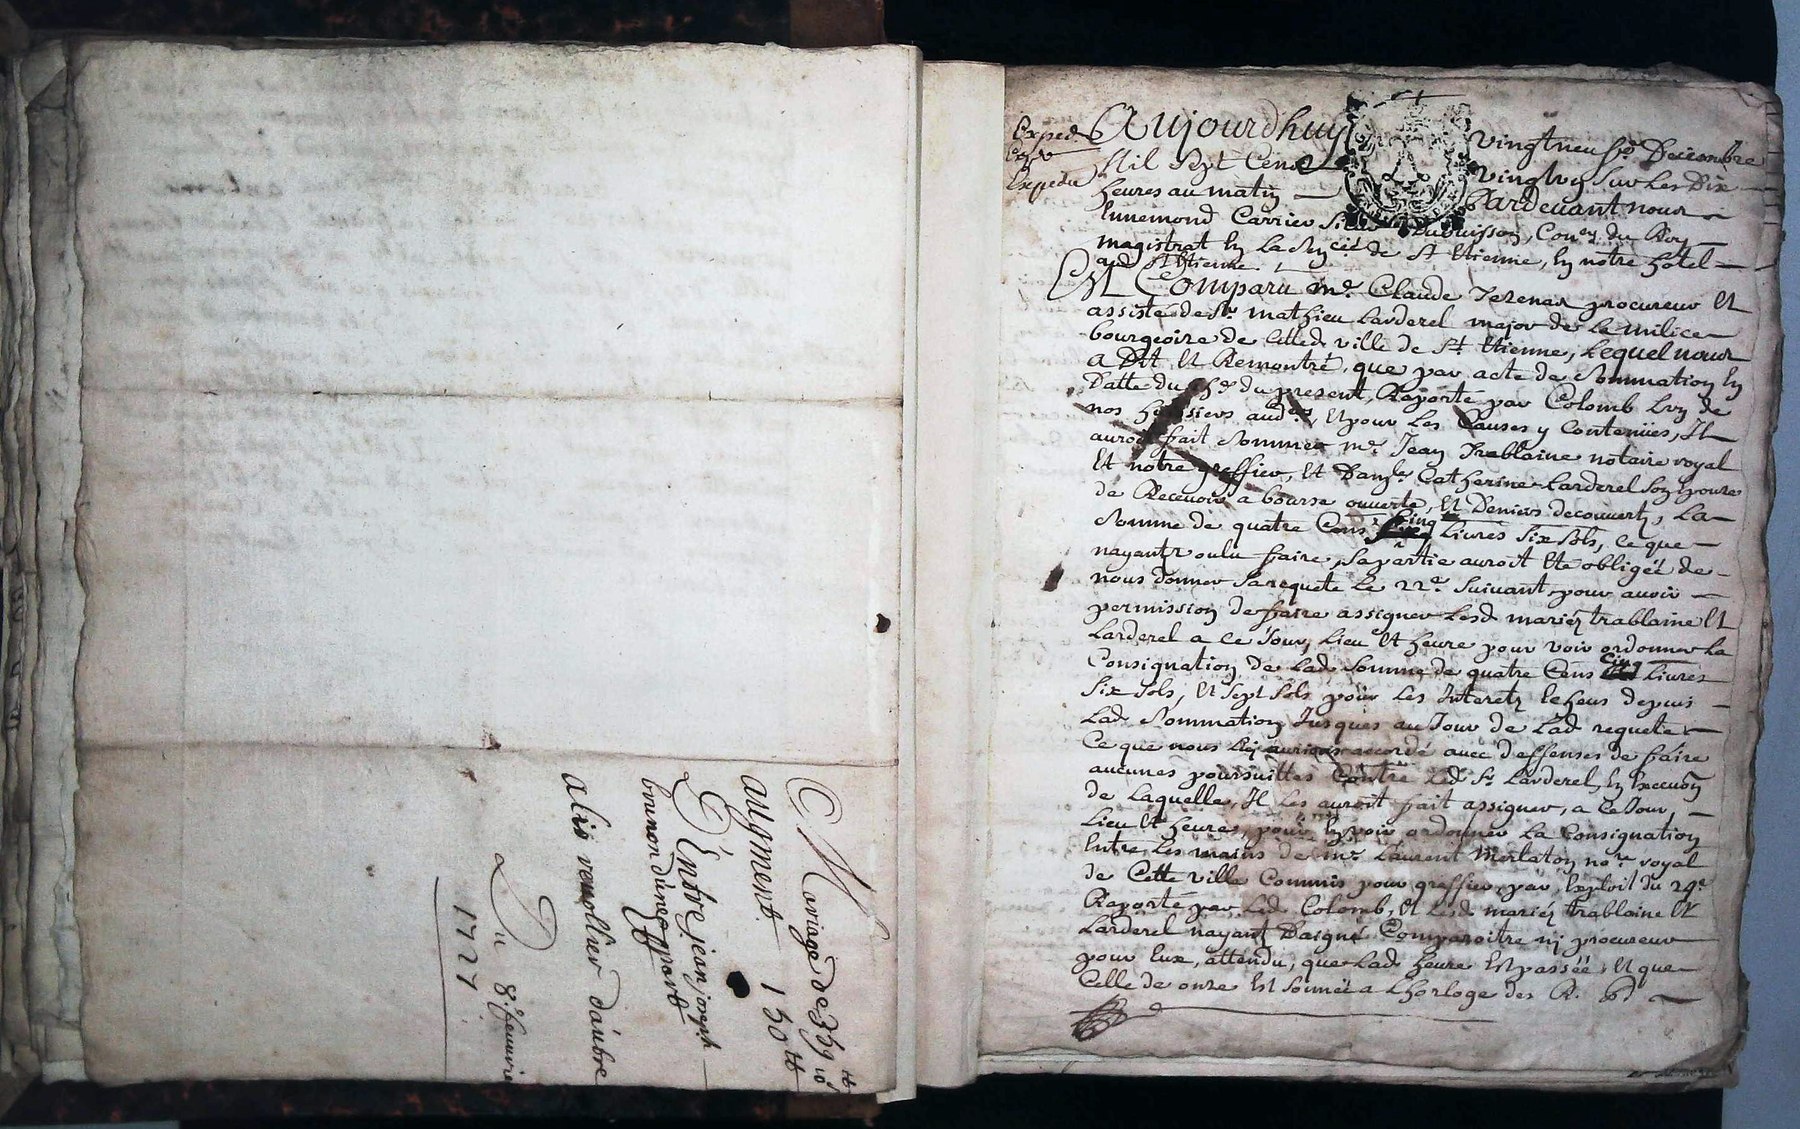 Mariage de 369 ₶ 10ˢ
augment 150 ₶
Entre jean joseph
brunon d'une part
alis vemollier d'aubre
Du 8e feuvrie
1727.
Exped
Expedie
Aujourdhuy vingtneufe Decembre
Mil Sept Cent vingtsix sur Les Dix
heures au matin Pardevant nous
Ennemond Carrier Dubuisson, Coner du Roy
magistrat En La de St Etienne, En notre hotel
aud St Etienne.
Est Comparu me. Claude Terenas procureur Et
assisté de Sr. mathieu Larderel major de La milice
bourgeoise de Cetted. ville de St. Etienne, Lequel nous
a Dit Et Remontré, que par acte de Sommation En
Datte du du present, Raporté par Colomb Luy de
nos huissiers audrs, Et pour Les Causes y Contenües, Il
auroit fait Sommer me. Jean Trablaine notaire royal
Et notre greffier, Et Damlle Catherine Larderel Son Epouse
de Recevoir a bourse ouverte, Et Deniers decouverts, La
Somme de quatre Cens Cinq Livres Six Sols, Ce que
nayant voulu faire, Sa partie auroit Eté obligéé de
nous donner Sa requete Le 22e. Suivant pour avoir
permission de faire assigner Lesd. mariéz trablaine Et
Larderel a Ce Jour, Lieu Et heure pour voir ordonner La
Consignation de Lad. Somme de quatre Cens Cinq Livres
Six Sols, Et Sept Sols pour Les Interetz Echeus depuis
Lad. Sommation Jusques au Jour de Lad. requete
Ce que nous Luy aurions accordé avec deffenses de faire
aucunes poursuittes Contre Led. Sr. Larderel, En Execuõn
de Laquelle, Il Les auroit fait assigner, a Ce Jour
Lieu Et heure, pour En voir ordonner La Consignation
Entre Les mains de me. Laurent Merlaton nore royal
de Cette ville Commis pour greffier, par Exploit du 24e
Raporté par Led. Colomb, Et Lesd. mariéz trablaine Et
Larderel nayant Daigné Comparoitre ny procureur
pour Eux, attendu, que Lad. heure Est passéé, Et que
Celle de onze Est Sonnéé a Lhorloge des R.